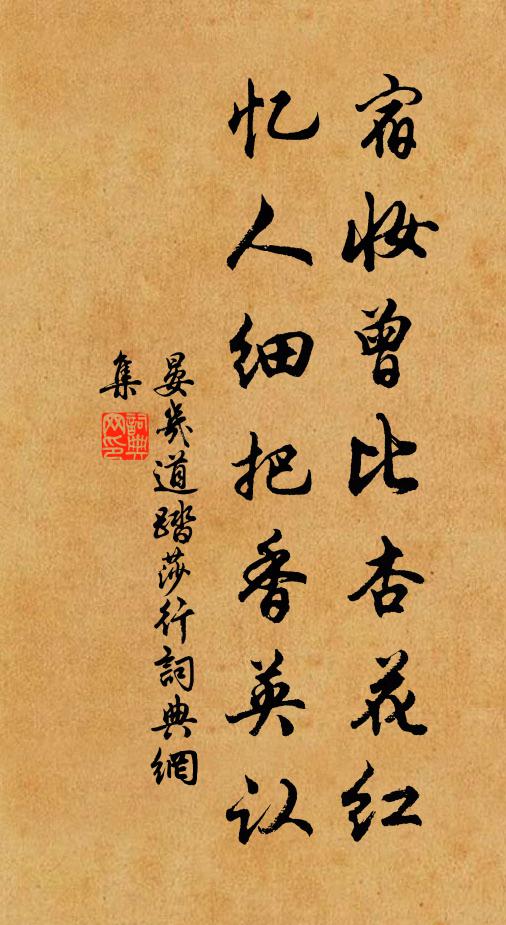 宿妆曾比杏花红
忆人细把香英认
晏幾道踏莎行詞典網
集
詞典
网印